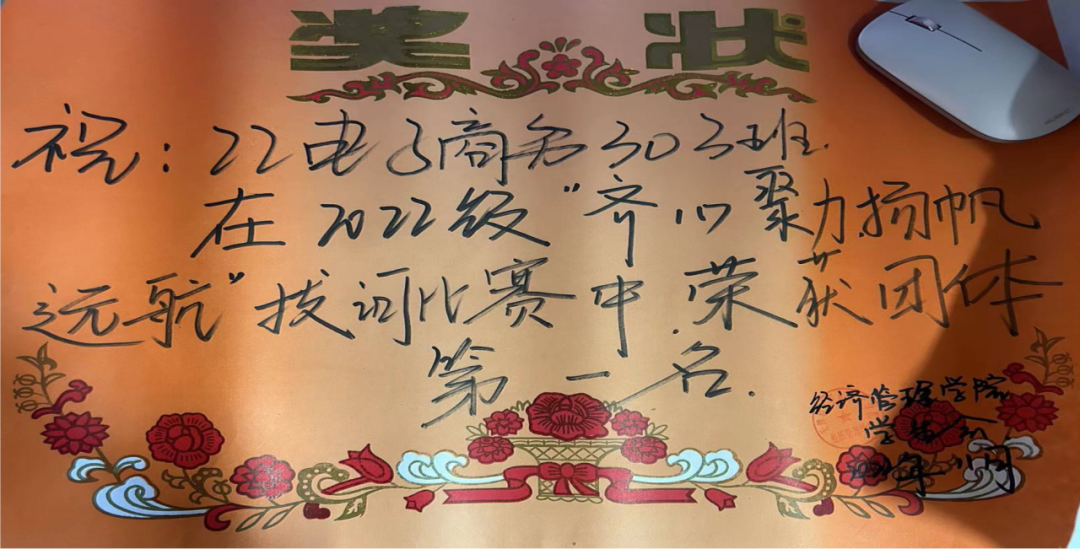 奖状
祝：22电子商务303班.
在2022级“齐心聚力.扬帆
远航”拔河比赛中.荣获团体
第一名.
经济管理学院
学生会
年11月